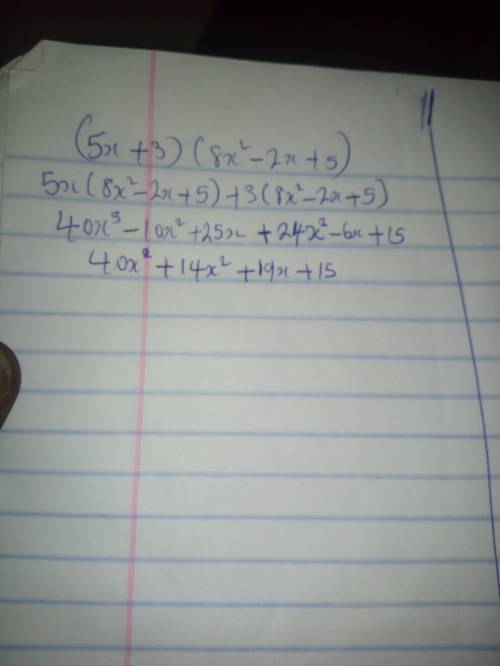 (5x + 3) (8x² - 2x + 5)
5x (8x² - 2x + 5) + 3 (8x² - 2x + 5)
40x³ - 10x² + 25x + 24x² - 6x + 15
40x² + 14x² + 19x + 15